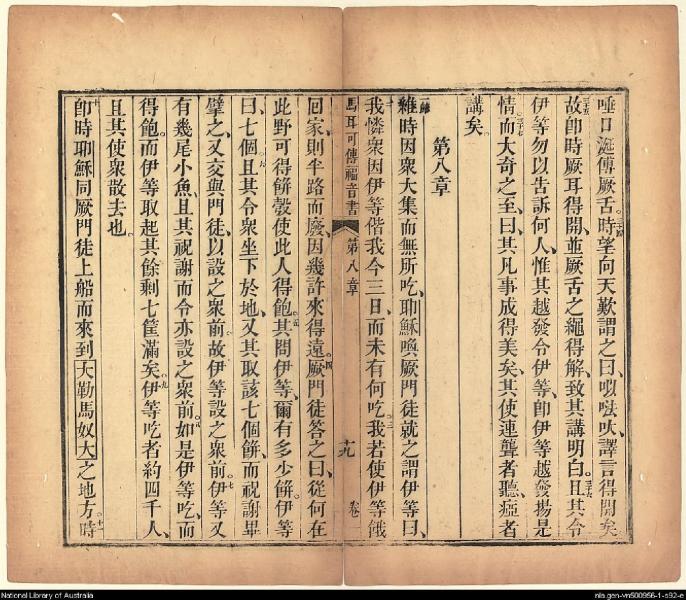 唾口涎傅厥舌。三十四時望向天歎謂之曰、㕽㕸呔、譯言得開矣
三十五故卽時厥耳得開、並厥舌之繩得解、致其講明白。三十六且其令
伊等勿以告訴何人、惟其越發令伊等、卽伊等越發揚是
情。三十七而大奇之、至曰、其凡事成得美矣、其使連聾者聽、瘂者
講矣。
第八章
一維時因衆大集而無所吃、耶穌喚厥門徒就之謂伊等曰、
二我憐衆因伊等偕我今三日、而未有何吃。三我若使伊等餓
馬耳可傳福音書 第八章 十九 卷
回家、則半路而廢、因幾許來得遠。四厥門徒答之曰、從何在
此野可得餅彀使此人得飽。五其問伊等、爾有多少餅。伊等
曰、七個。六且其令衆坐下於地、又其取該七個餅、而祝謝畢
擘之、又交與門徒、以設之衆前。故伊等設之衆前。七伊等又
有幾尾小魚、且其祝謝而令亦設之衆前。八如是伊等吃、而
得飽。而伊等取起其餘剩七筐滿矣。九伊等吃者約四千人、
且其使衆散去也。
十卽時耶穌同厥門徒上船而來到大勒馬奴大之地方。十一時
National Library of Australia
nla.gen-vn500956-1-s92-e